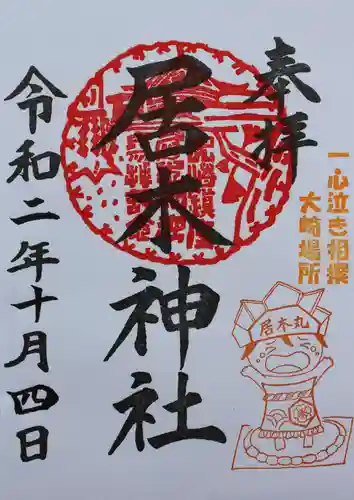 奉拝
一心泣き相撲
大崎場所
居木丸
居木神社
令和二年十月四日